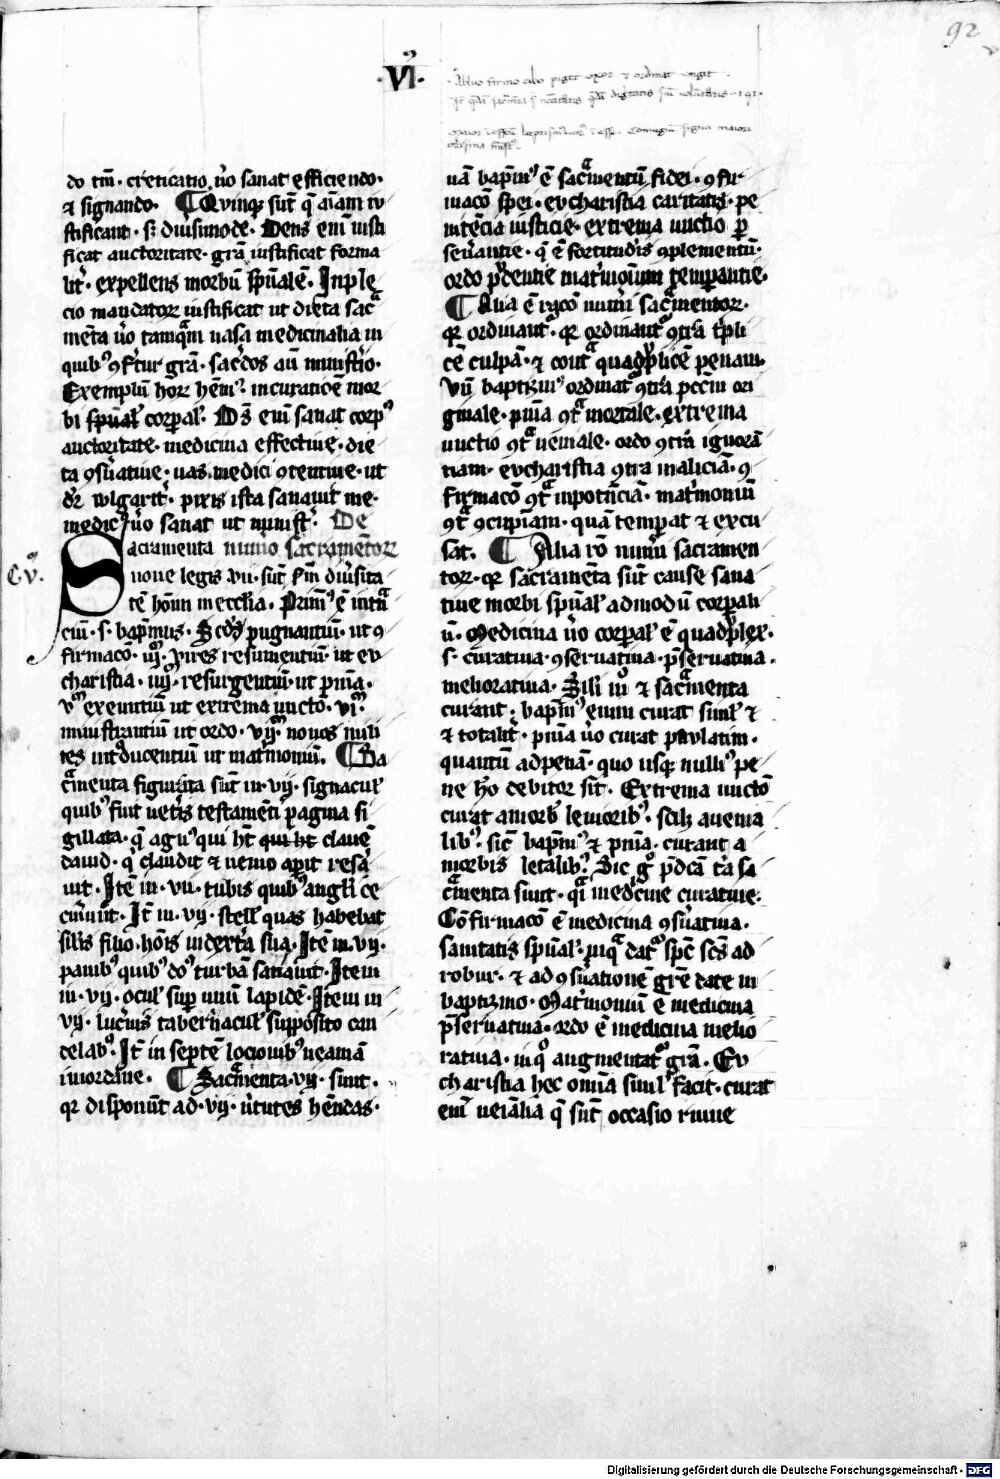 92
·VI·
Abluo firmo cibo piget uxor et ordinat ungit
do tm̄· creticatio v̓o sanat efficiendo·
⁊ signando· ¶ Qvinqꝫ sūt q̄ aīam iu
stificant· sꝫ diu̓simode· Deus eni᷒ iusti
ficat auctoritate· grā iustificat forma
lit̓· expellens morbū spūalē· Inple
cio mandatorꝝ iustificat ut dieta sac̄
mēta v̓o tamq̄m uasa medicinalia in
quibꝰ ꝯf̄tur grā· sac̓dos aū minist̓io·
Exemplū hoꝝ hēmꝰ· in curatiōe mor
bi corꝑal̓· Ds̄ eni᷒ sanat corpꝰ
auctoritate· medicina effectiue· die
ta ꝯsu̓atiue· uas medici ꝯtentiue· ut
dr̄ wlgarit̓· pixis ista sanauit me·
medicꝰ v̓o sanat ut minist̓· De
acramenta numo sacramētoꝝ
C·v·
noue legis vii· sūt fm̄ diu̓sita
tē hōīm in ecclīa· Primꝰ ē intrā
ciū· s· bapmus· Scd̓s pugnantiū· ut ꝯ
firmacō· iijᵐ· vires resumentiū· ut eu
charistia· iiijᵐ· resurgentiū· ut pn̄ia·
vᵐ exeuntiū ut extrema uncto· viᵐ·
ministrantiū ut ordo· vijᵐ nouos mili
tes introducentiū ut mat̓moniū· ¶ Sa
c̄menta figurata sūt in· vij· signacul̓
quibꝰ fuit uet̓is testamēti pagina si
gillata· q̄ agnꝰ qui ht̄ clauē
dauid· q̓ claudit ⁊ nemo aꝑit resāᷓ
uit· Itē in· vii· tubis quibꝰ angl̓i ce
cin̓unt· It̄ in· vij· stell̓ quas habebat
sil̓is filio hōīs in dext̓a sua· Itē in· vij·
panibꝰ quibꝰ do᷒ turbā satiauit· Item
in· vij· ocul̓ suꝑ unū lapidē· Item in
vij· luc̓nis tabernacul̓ supposito can
delabꝰ· It̄ in septē lociōibꝰ neamā
in iordane· ¶ Sac̄menta· vij· sunt·
qꝛ disponūt ad· vij· v̓tutes hēndas·
nā bapmꝰ ē sac̄mentū fidei· ꝯfir
macō spei· eucharistia caritatis· pe
nitēcia iusticie· extrema unctio ꝑ
seu̓antie· q̄ ē fortitudīs ꝯplementū·
ordo prudentie mat̓moniū temꝑantie·
¶ Alia ē rac̄o num̓i sac̄mentoꝝ·
qꝛ ordinant᷒· qꝛ ordinant᷒ ꝯtra tpli
cē culpā· ⁊ cont̄ quadruplicē penam·
Vn̄ baptism̓ꝰ ordinat᷒ ꝯtra pcc̄m ori
ginale· pn̄ia ꝯt̄ mortale· extrema
unctio ꝯt̄ ueniale· ordo ꝯtra ignorā
tiam· eucharistia ꝯtra maliciā· ꝯ
firmacō ꝯt̄ inpotn̄ciā· mat̓moniū
ꝯt̄ ꝯcupīam· quā temꝑat ⁊ excu
sat· ¶ Alia rō num̓i sacramen
toꝝ· qꝛ sacramēta sūt cause sana
tiue morbi spūal̓ admodū corꝑali
ū· Medicina v̓o corꝑal̓ ē quadruplex·
s· curatiua· ꝯseruatiua· p̄seruatiua·
melioratiua· Sil̓i mō ⁊ sac̄menta
curant· bapmꝰ enim curat simul̓ ⁊
⁊ totalit̓· pn̄ia v̓o curat paulatim·
quantū ad penā· quo usqꝫ nulliꝰ pe
ne hō debitor sit· Extrema unctō
curat a morb̓ leuioribꝰ· scilꝫ a uenia
libꝰ· sic᷒ bapmꝰ ⁊ pn̄ia· curant a
morbis letalibꝰ· Sic g̊ p̄dcā tr̓a sa
c̄menta sunt· q̄i medic̓ne curatiue·
Cōfirmacō ē medicina ꝯsu̓atiua·
sanitatis spūal̓· in qᷓ dat᷒ spc̄ scs̄ ad
robur· ⁊ ad ꝯsu̓ationē grē date in
baptismo· Mat̓moniū ē medicina
p̄seruatiua· ordo ē medicina melio
ratiua· in qͦ augmentat᷒ grā· Eu
charistia hec omīa simul̓ facit· curat
eni᷒ uenialia q̄ sūt occasio ruine
Digitalisierung gefördert durch die Deutsche Forschungsgemeinschaft - DFG